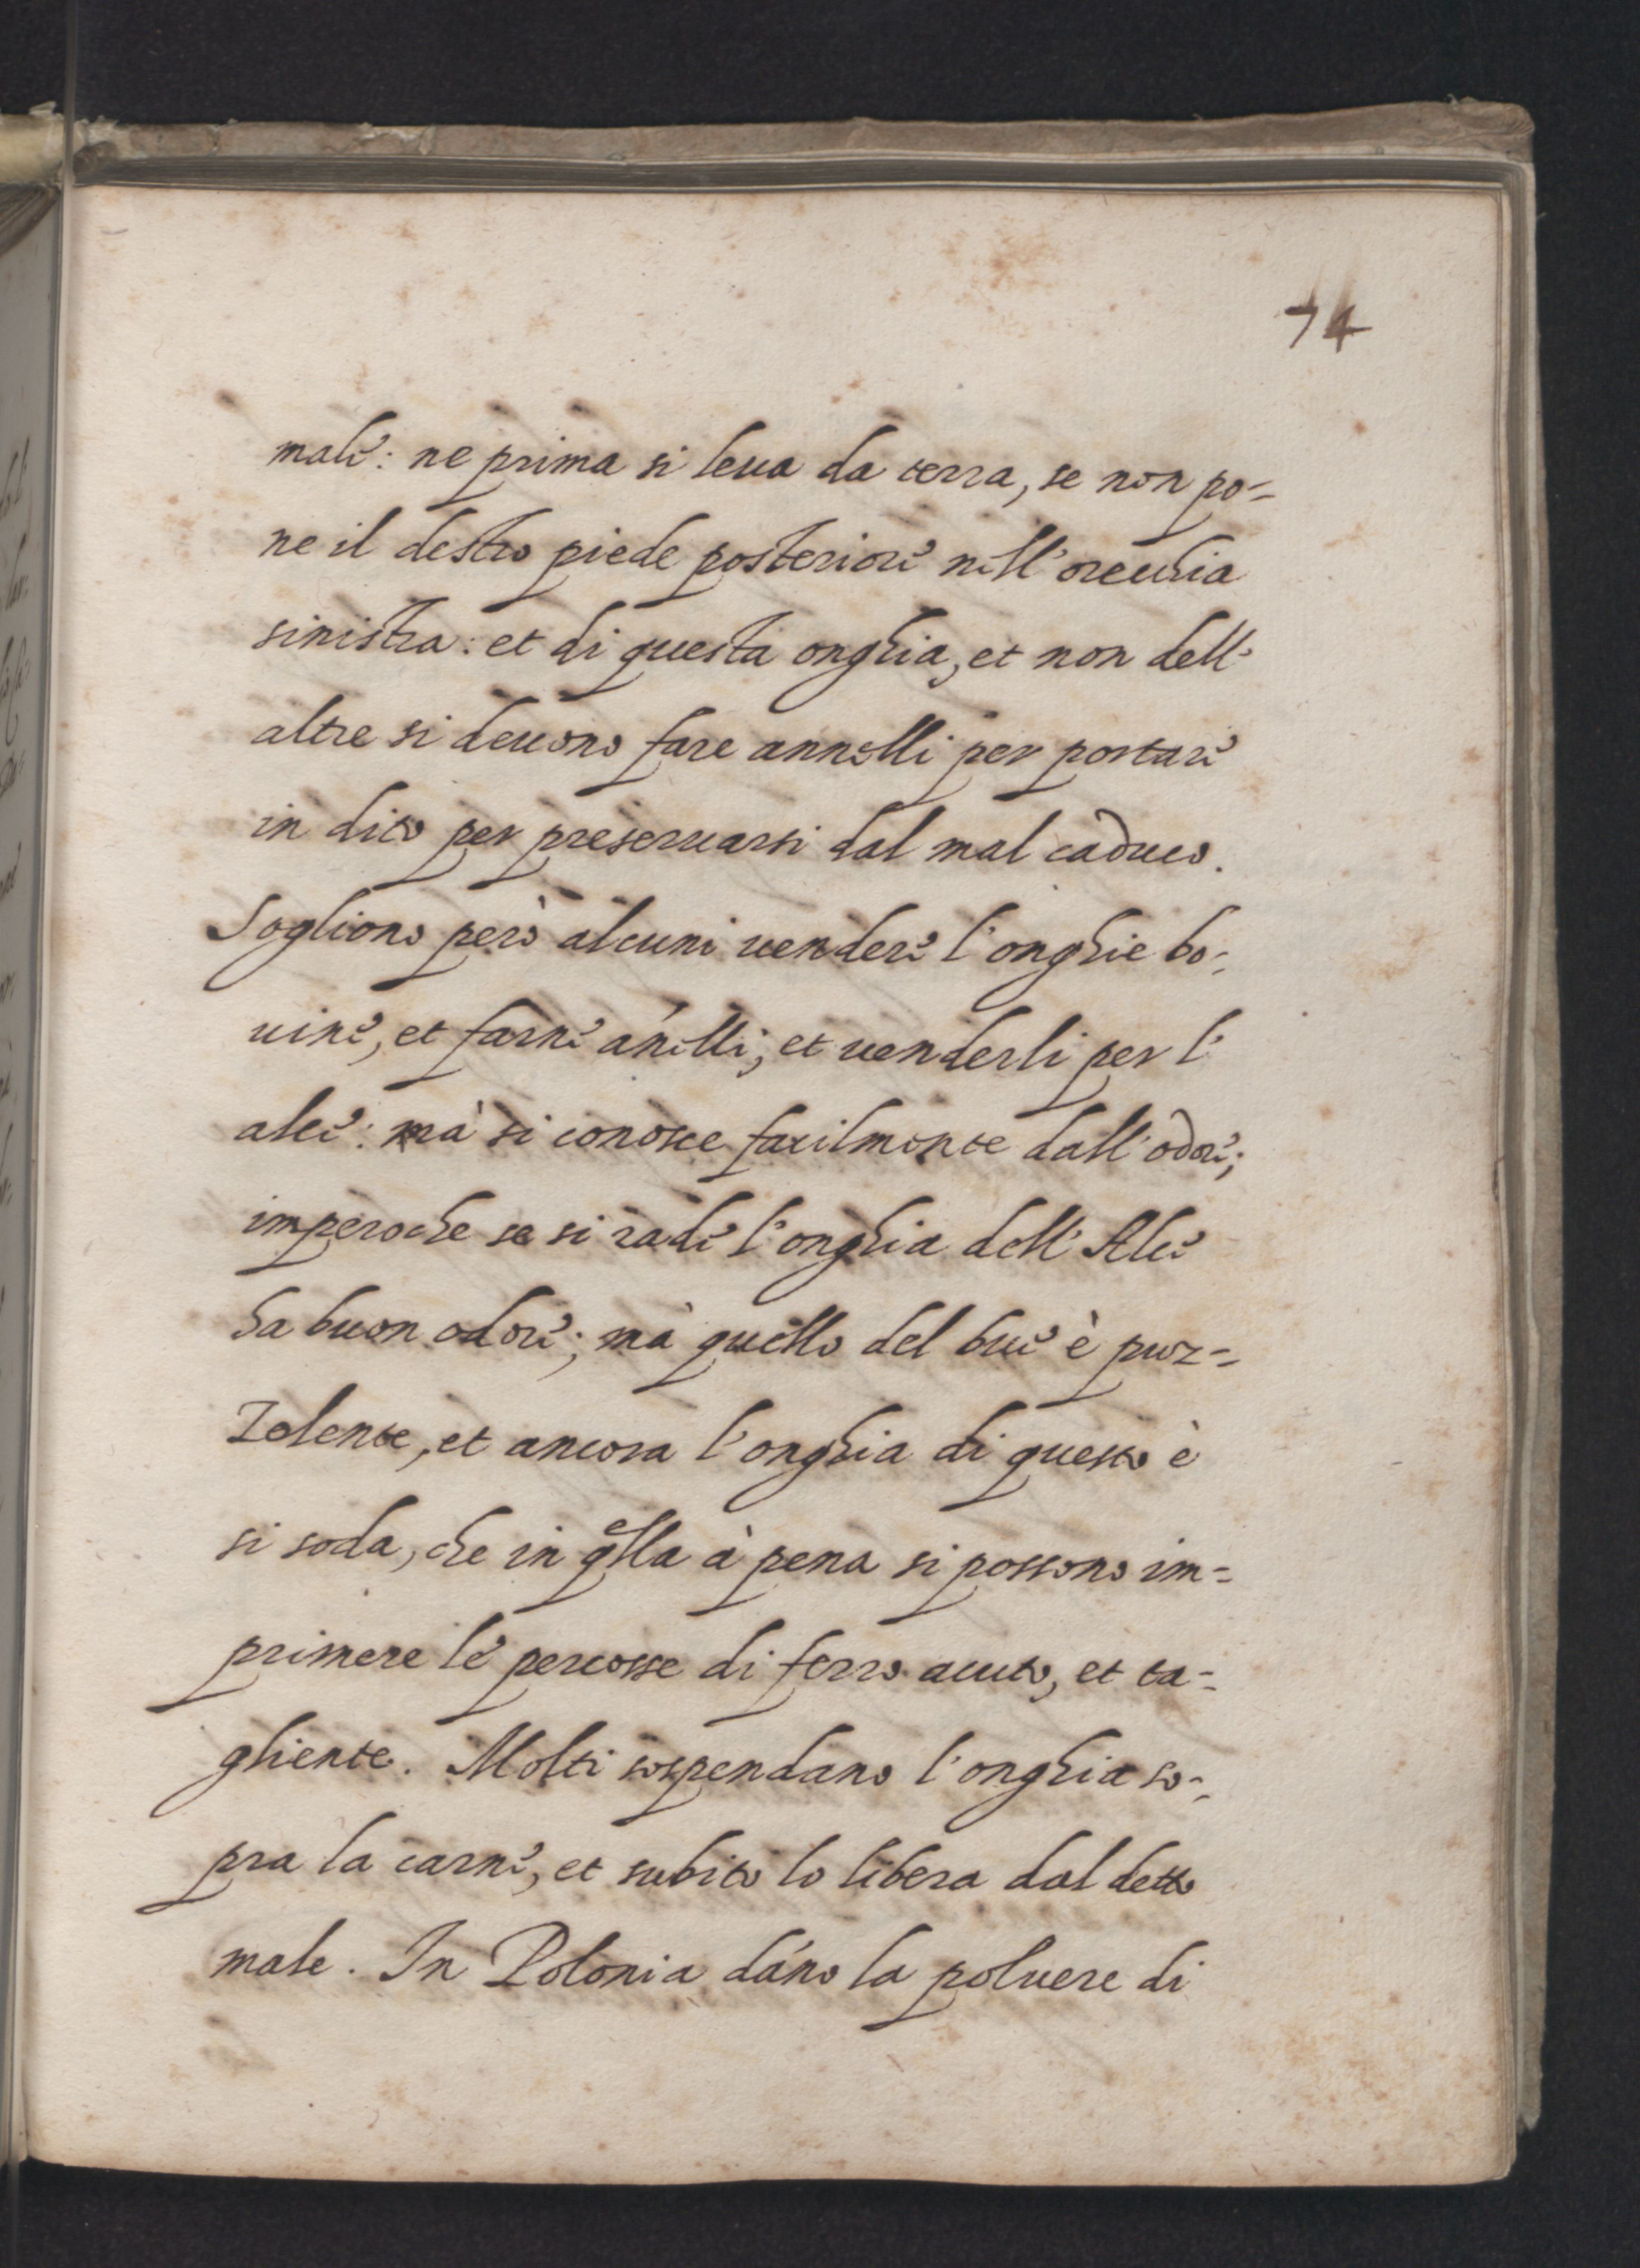 74
male: ne prima si leua da terra, se non po=
ne il destro piede posteriore nell'orecchia
sinistra: et di questa onghia, et non dell'
altre si deuono fare annelli per portare
in dito per preseruarsi dal mal caduco.
Sogliono però alcuni uendere l'onghie bo=
uine, et farne anelli, et uenderli per l'
alce: mà si conosce facilmente dall'odore;
imperoche se si rade l'onghia dell'Alce
ha buon odore; mà quello del bue è puz=
zolente, et ancora l'onghia di questo è
si soda, che in qlla à pena si possono im=
primere le percosse di ferro acuto, et ta=
gliente. Molti sospendano l'onghia so=
pra la carne, et subito lo libera dal detto
male. In Polonia dáno la poluere di